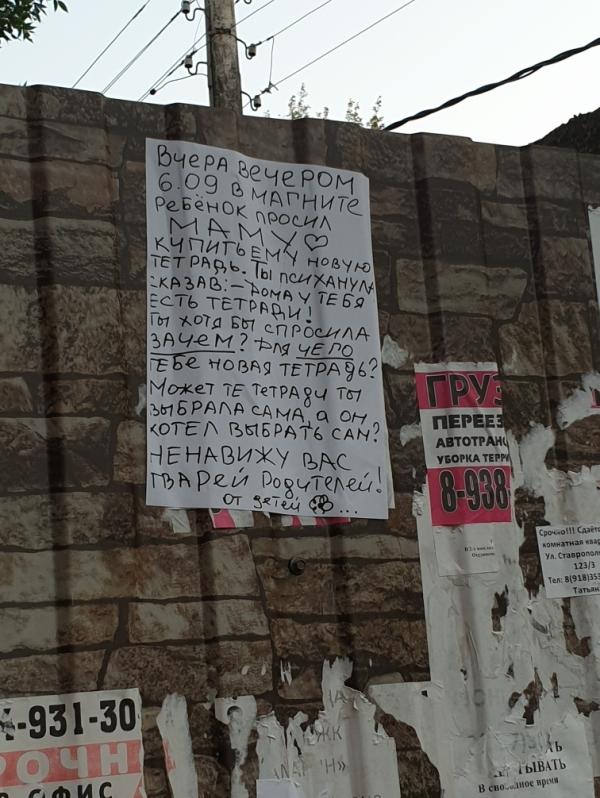 Вчера вечером
6.09 в магните
ребёнок просил
МАМУ♡
купить ему новую
тетрадь. Ты психанула
сказав: - дома у тебя
есть тетради!
Ты хотя бы спросила
ЗАЧЕМ? для ЧЕГО
тебе новая тетрадь?
Может те тетради ты
выбрала сама, а он,
хотел выбрать сам?
НЕНАВИЖУ ВАС
тварей родителей!
от детей ...
ГРУЗ
ПЕРЕЕЗ
АВТОТРАН
УБОРКА ТЕРРИ
8-938
Срочно!!! Сдаётс
комнатная квар
Ул. Ставропол
123/3
Тел: 8(918)353
Татьян
4-931-30
РОЧН
ОФИС
ЖК
В свободное время